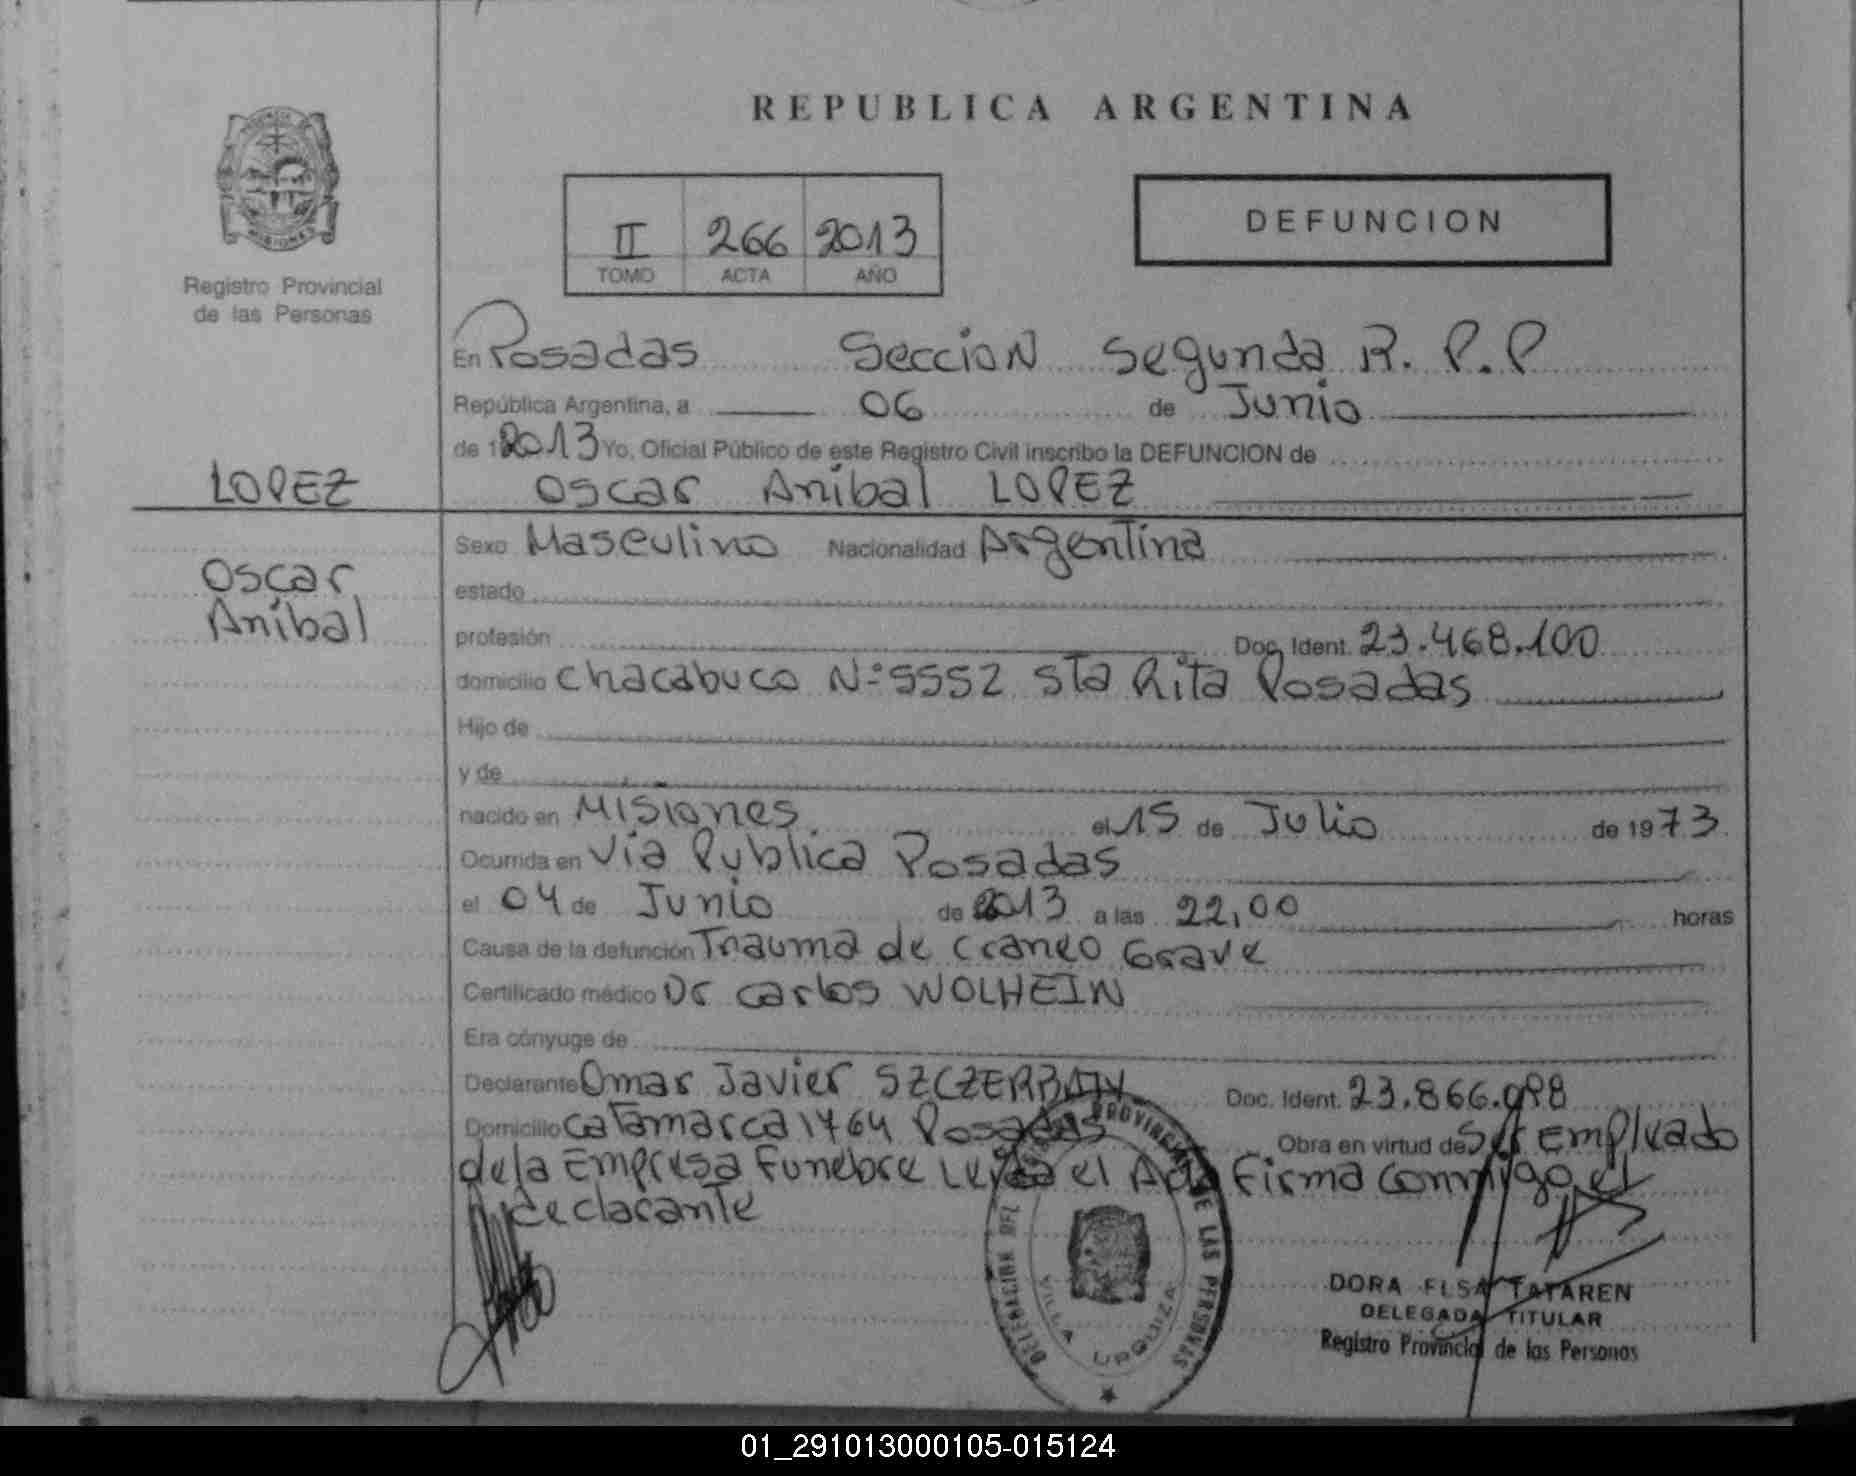 REPUBLICA ARGENTINA
MISIONES
Registro Provincial
de las Personas
II 266 2013
TOMO ACTA AÑO
DEFUNCION
En Posadas Seccion Segunda R. P. P
República Argentina, a 06 de Junio
de 2013 Yo, Oficial Público de este Registro Civil inscribo la DEFUNCION de
LOPEZ
Oscar Anibal LOPEZ
Oscar
Anibal
Sexo Masculino Nacionalidad Argentina
estado
profesión Doc. Ident. 23.468.100
domicilio Chacabuco Nº 5552 Sta Rita Posadas
Hijo de
y de
nacido en Misiones el 15 de Julio de 1973
Ocurrida en Via Publica Posadas
el 04 de Junio de 2013 a las 22,00 horas
Causa de la defunción Trauma de Craneo Grave
Certificado médico Dr Carlos WOLHEIN
Era cónyuge de
Declarante Omar Javier Doc. Ident.
Domicilio Catamarca 1764 Posadas Obra en virtud de Ser Empleado
de la Empresa Funebre Leida el Acta Firma Conmigo el
declarante
DELEGACION DEL PROVINCIAL DE LAS PERSONAS
VILLA URQUIZA
DORA ELSA TATAREN
DELEGADA TITULAR
Registro Provincial de las Personas
01_291013000105-015124